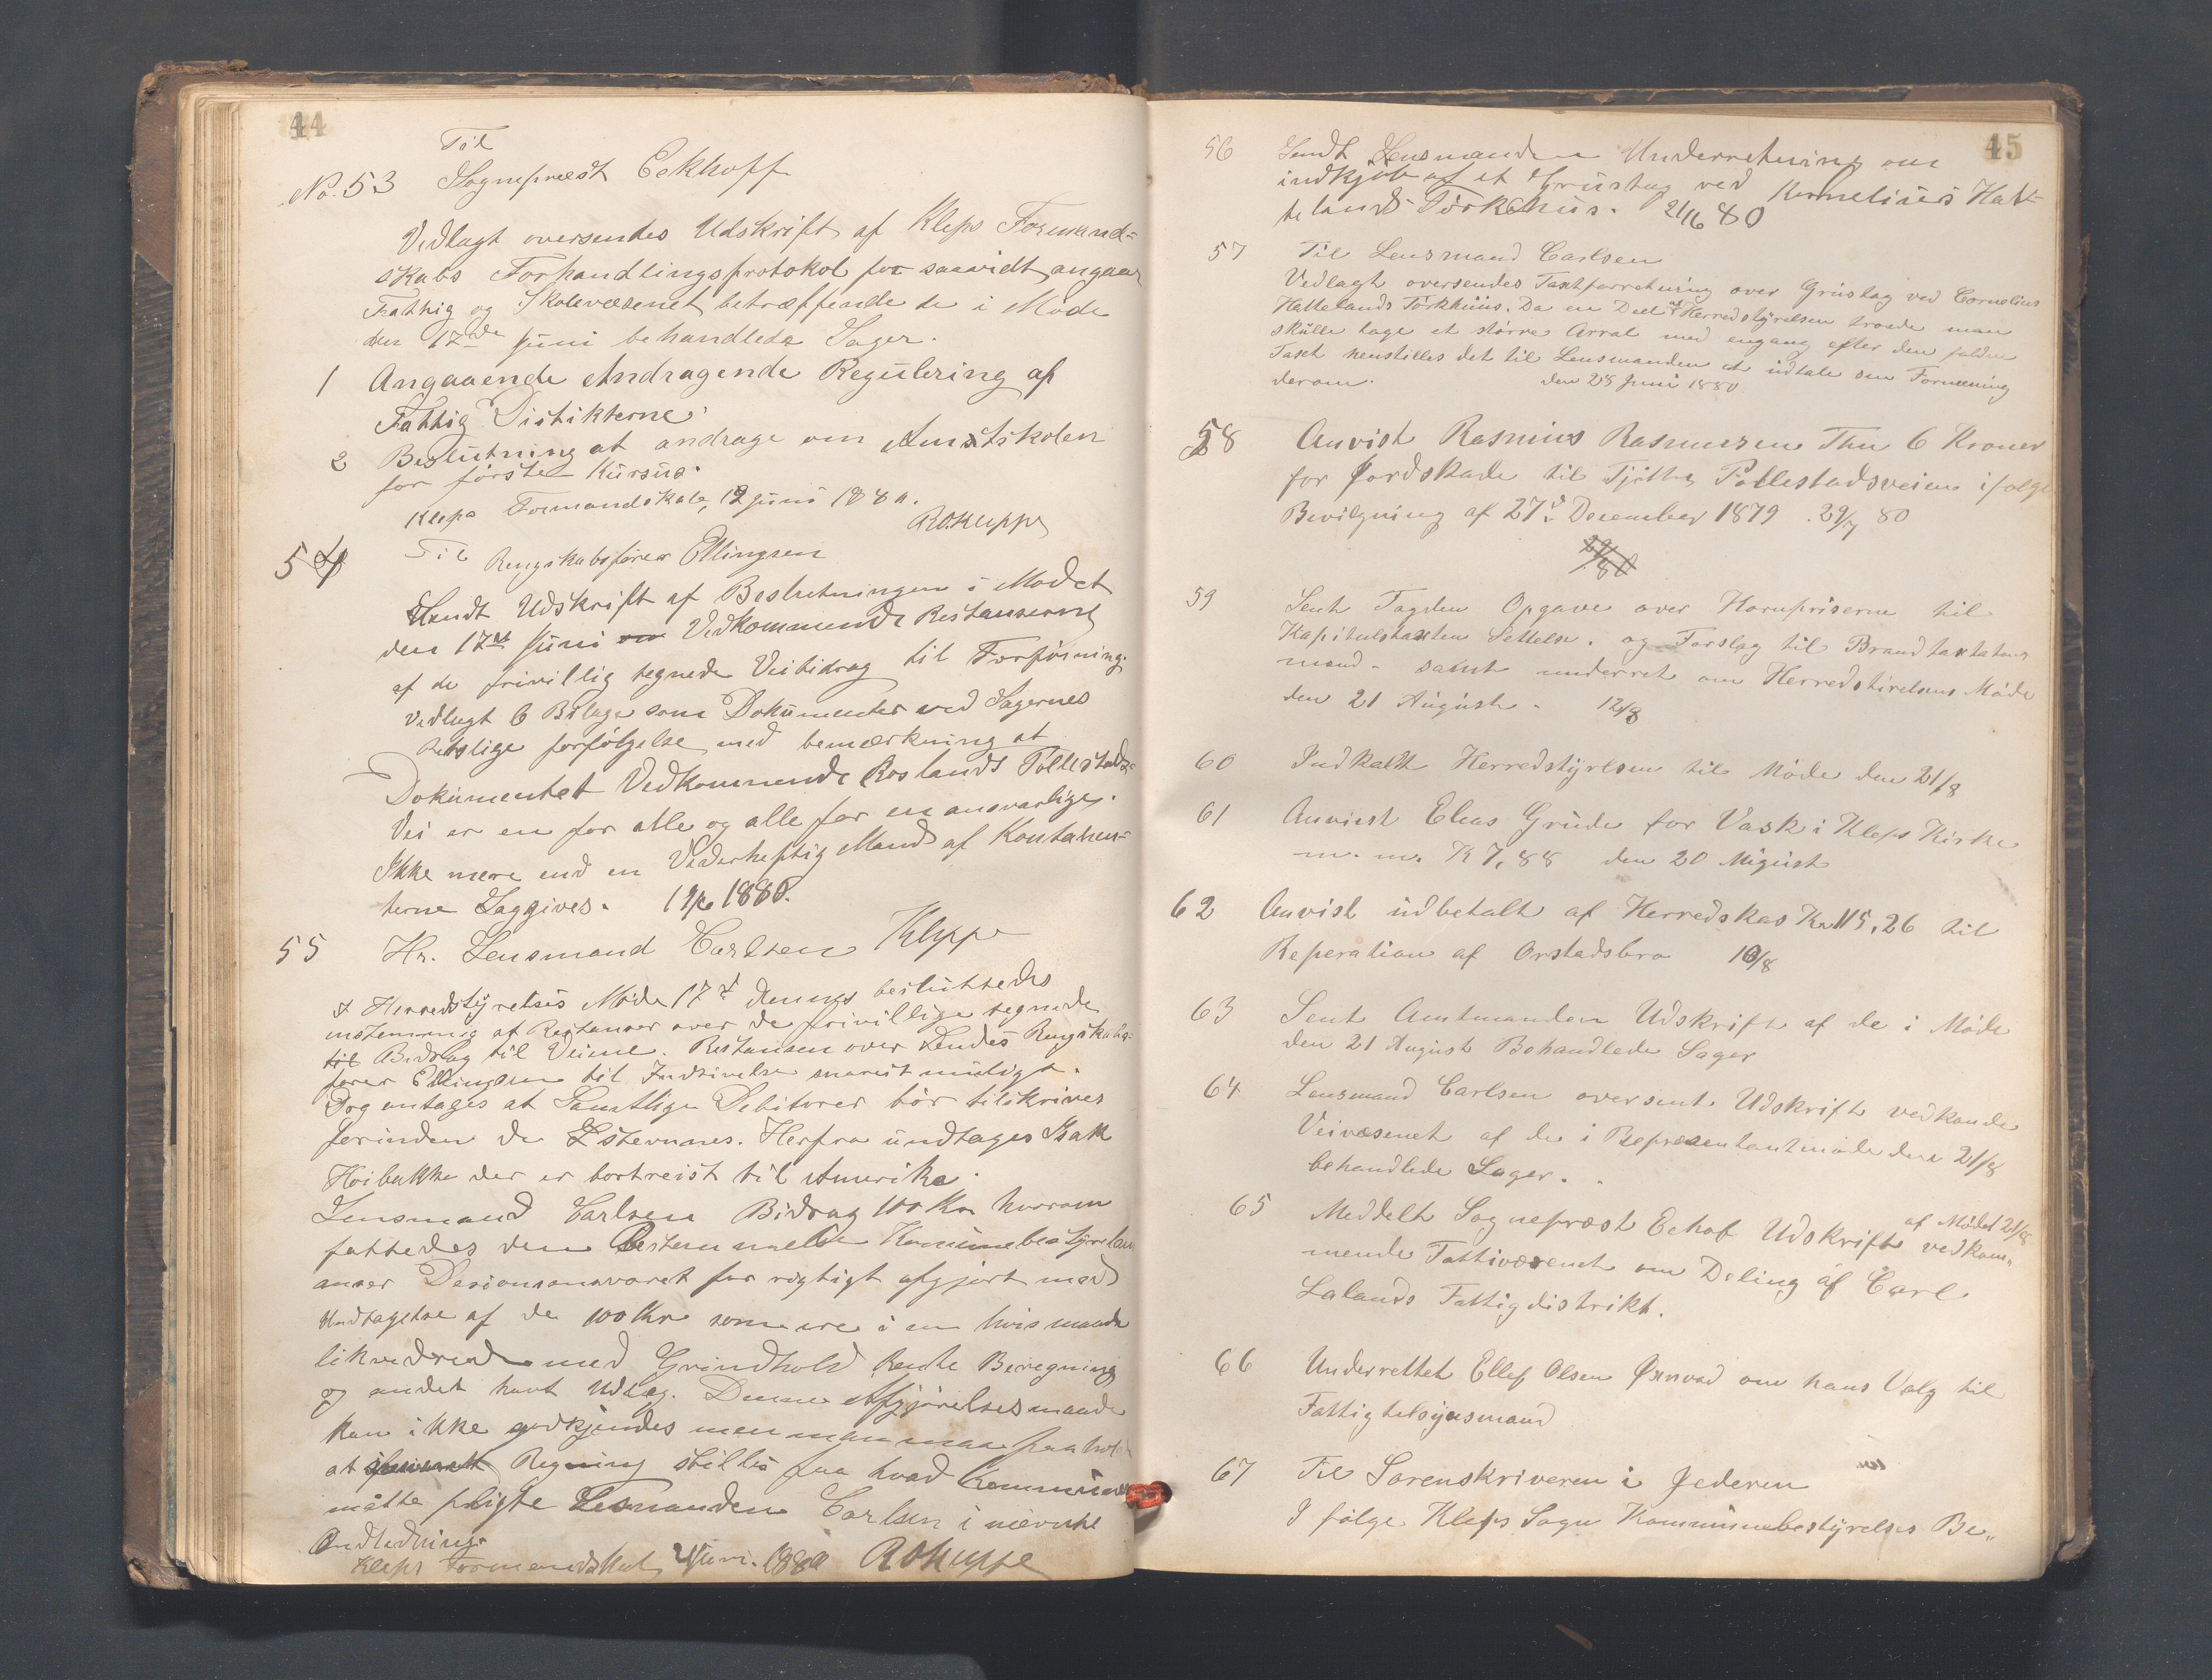 44
Til
No. 53 Sognepræst Eckhoff
Vedlagt oversendes Udskrift af Kleps Formand=
skabs Forhandlingsprotokol for saavidt angaar
Fattig og Skolevæsenet betræffende de i Møde
den 17de Juni behandlede Sager.
1 Angaaende Andragende Regulering af
Fattig Distikterne
2 Beslutning at andrage om Amtskolen
for første Kursus.
Kleps Formandskab, 19 Juni 1880.
ROKleppe
54 Til Rengskabsfører Ellingsen
Sendt Udskrift af Beslutningen i Mødet
den 17de Juni Vedkommende Restanserne
af de frivillig tegnede Veibidrag til Forføining
vedlagt 6 Bilage som Dokumenter ved Sagernes
Retslige forfølgelse med bemærkning at
Dokumentet Vedkommende Roslands Pollestads=
Vei er en for alle og alle for en ansvarlige.
Ikke mere end en Vederheftig Mand af Kontrahen=
terne Saggives. 19/6 1880.
55 Hr. Lensmand Carlsen Kleppe
I Herredstyrelses Møde 17d dennes besluttedes
instemning af Restanser over de frivillige tegnede
til Bidrag til Veiene. Restansen over Sendes Rengskabs=
fører Ellingsen til Inddrivelse snarest muligt.
Dog antages at Samtlige Debitorer bør tilskrives
forinden de Stevnes. Herfra undtages Isak
Høibakke der er bortreist til Amerika.
Lensmand Carlsen Bidrag 100 Kr hvorom
fattedes den Bestemmelse Kommunebestyrelsen
anser Decisionsansvaret for rigtigt afgjort med
Undtagelse af de 100 Kr som ere i en hvis maade
likvidrede med Grindhold Rente Beregning
og andet havt Udlæg. Denne Afgjørelsesmaade
kan ikke godkjendes men man maa paaholde
at Regning stilles paa hvad Kommunen
måtte pligte Lensmanden Carlsen i nævnte
Andledning.
Kleps Formandskab Juni 1880 ROKleppe
45
56 Sendt Lensmanden Underretning om
indkjøb af et Grustag ved Kornelius Hat=
telands Tørkehus. 21/6 80
57 Til Lensmand Carlsen
Vedlagt oversendes Taxtforretning over Grustag ved Cornelius
Hattelands Tørkhuus. Da en Deel af Herredstyrelsen troede man
skulle tage et større Arral med engang efter den faldne
Taxt henstilles det til Lensmanden at udtale sin Formening
derom. den 28 Juni 1880
58 Anvist Rasmus Rasmussen Thu 6 Kroner
for Jordskade til Tjøtta Pollestadsveien ifølge
Bevilgning af 27d December 1879. 29/7 80
29/7 80
59 Sent Fogden Opgave over Kornpriserne til
Kapitulstaxten Settelse. og Forslag til Brandtaxtations
mænd - samt underret om Herredstirelsens Møde
den 21 August. 12/8
60 Indkaldt Herredstyrelsen til Møde den 21/8
61 Anviest Elias Grude for Vask i Kleps Kirke
m. m. K 7,88 den 20 August
62 Anvist udbetalt af Herredskas Kr 115,26 til
Reperation af Orstadsbro 10/8
63 Sent Amtmanden Udskrift af de i Møde
den 21 August Behandlede Sager
64 Lensmand Carlsen oversent Udskrift vedkomde
Veivæsenet af de i Repræsentantmøde den 21/8
behandlede Sager.
65 Meddelt Sognepræst Echof Udskrift af Mødet 21/8 vedkom=
mende Fattivæsenet om Deling af Carl
Lalands Fattigdistrikt.
66 Underrettet Ellef Olsen Øxnvad om hans Valg til
Fattigtelsynsmand
67 Til Sorenskriveren i Jederen
I følge Kleps Sogn Kommunebestyrelses Be=